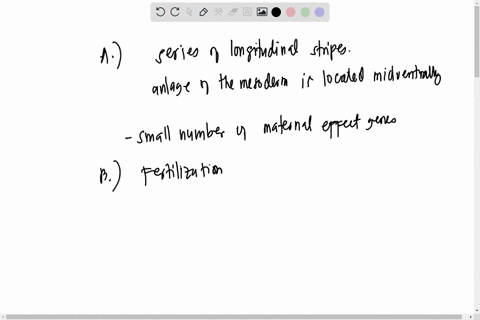 A.) series of longitudinal stripes.
anlage of the mesoderm is located midventrally
- small number of maternal effect genes
B.) Fertilization